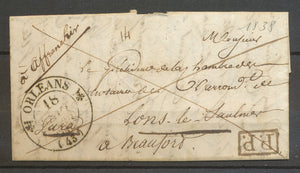 1838
14
Monsieur
affranchir
le Président de la chambre des
notaires de l'arrond. de
Lons-le-Saulnier
à Beaufort
Jura
ORLEANS
18
(43)
P.P.